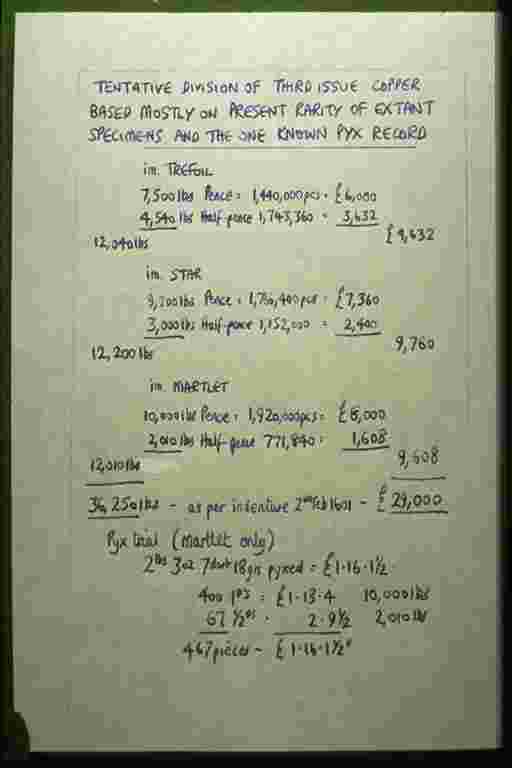 TENTATIVE DIVISION OF THIRD ISSUE COPPER
BASED MOSTLY ON PRESENT RARITY OF EXTANT
SPECIMENS AND THE ONE KNOWN PYX RECORD
im. TREFOIL
7,500 lbs Pence = 1,440,000 pcs = £6,000
4,540 lbs Half-pence 1,743,360 = 3,632
12,040 lbs £9,632
im. STAR
9,200 lbs Pence = 1,766,400 pcs = £7,360
3,000 lbs Half-pence 1,152,000 = 2,400
12,200 lbs 9,760
im. MARTLET
10,000 lbs Pence = 1,920,000 pcs = £8,000
2,010 lbs Half-pence 771,840 = 1,608
12,010 lbs 9,608
36,250 lbs - as per indenture 2nd Feb 1601 - £29,000
Pyx trial (martlet only)
2 lbs 3 oz 7 dwt 18 grs pyxed = £1-16-1½
400 1ds = £1-13-4 10,000 lbs
67 ½ds = 2-9½ 2,010 lb
467 pieces - £1-16-1½d